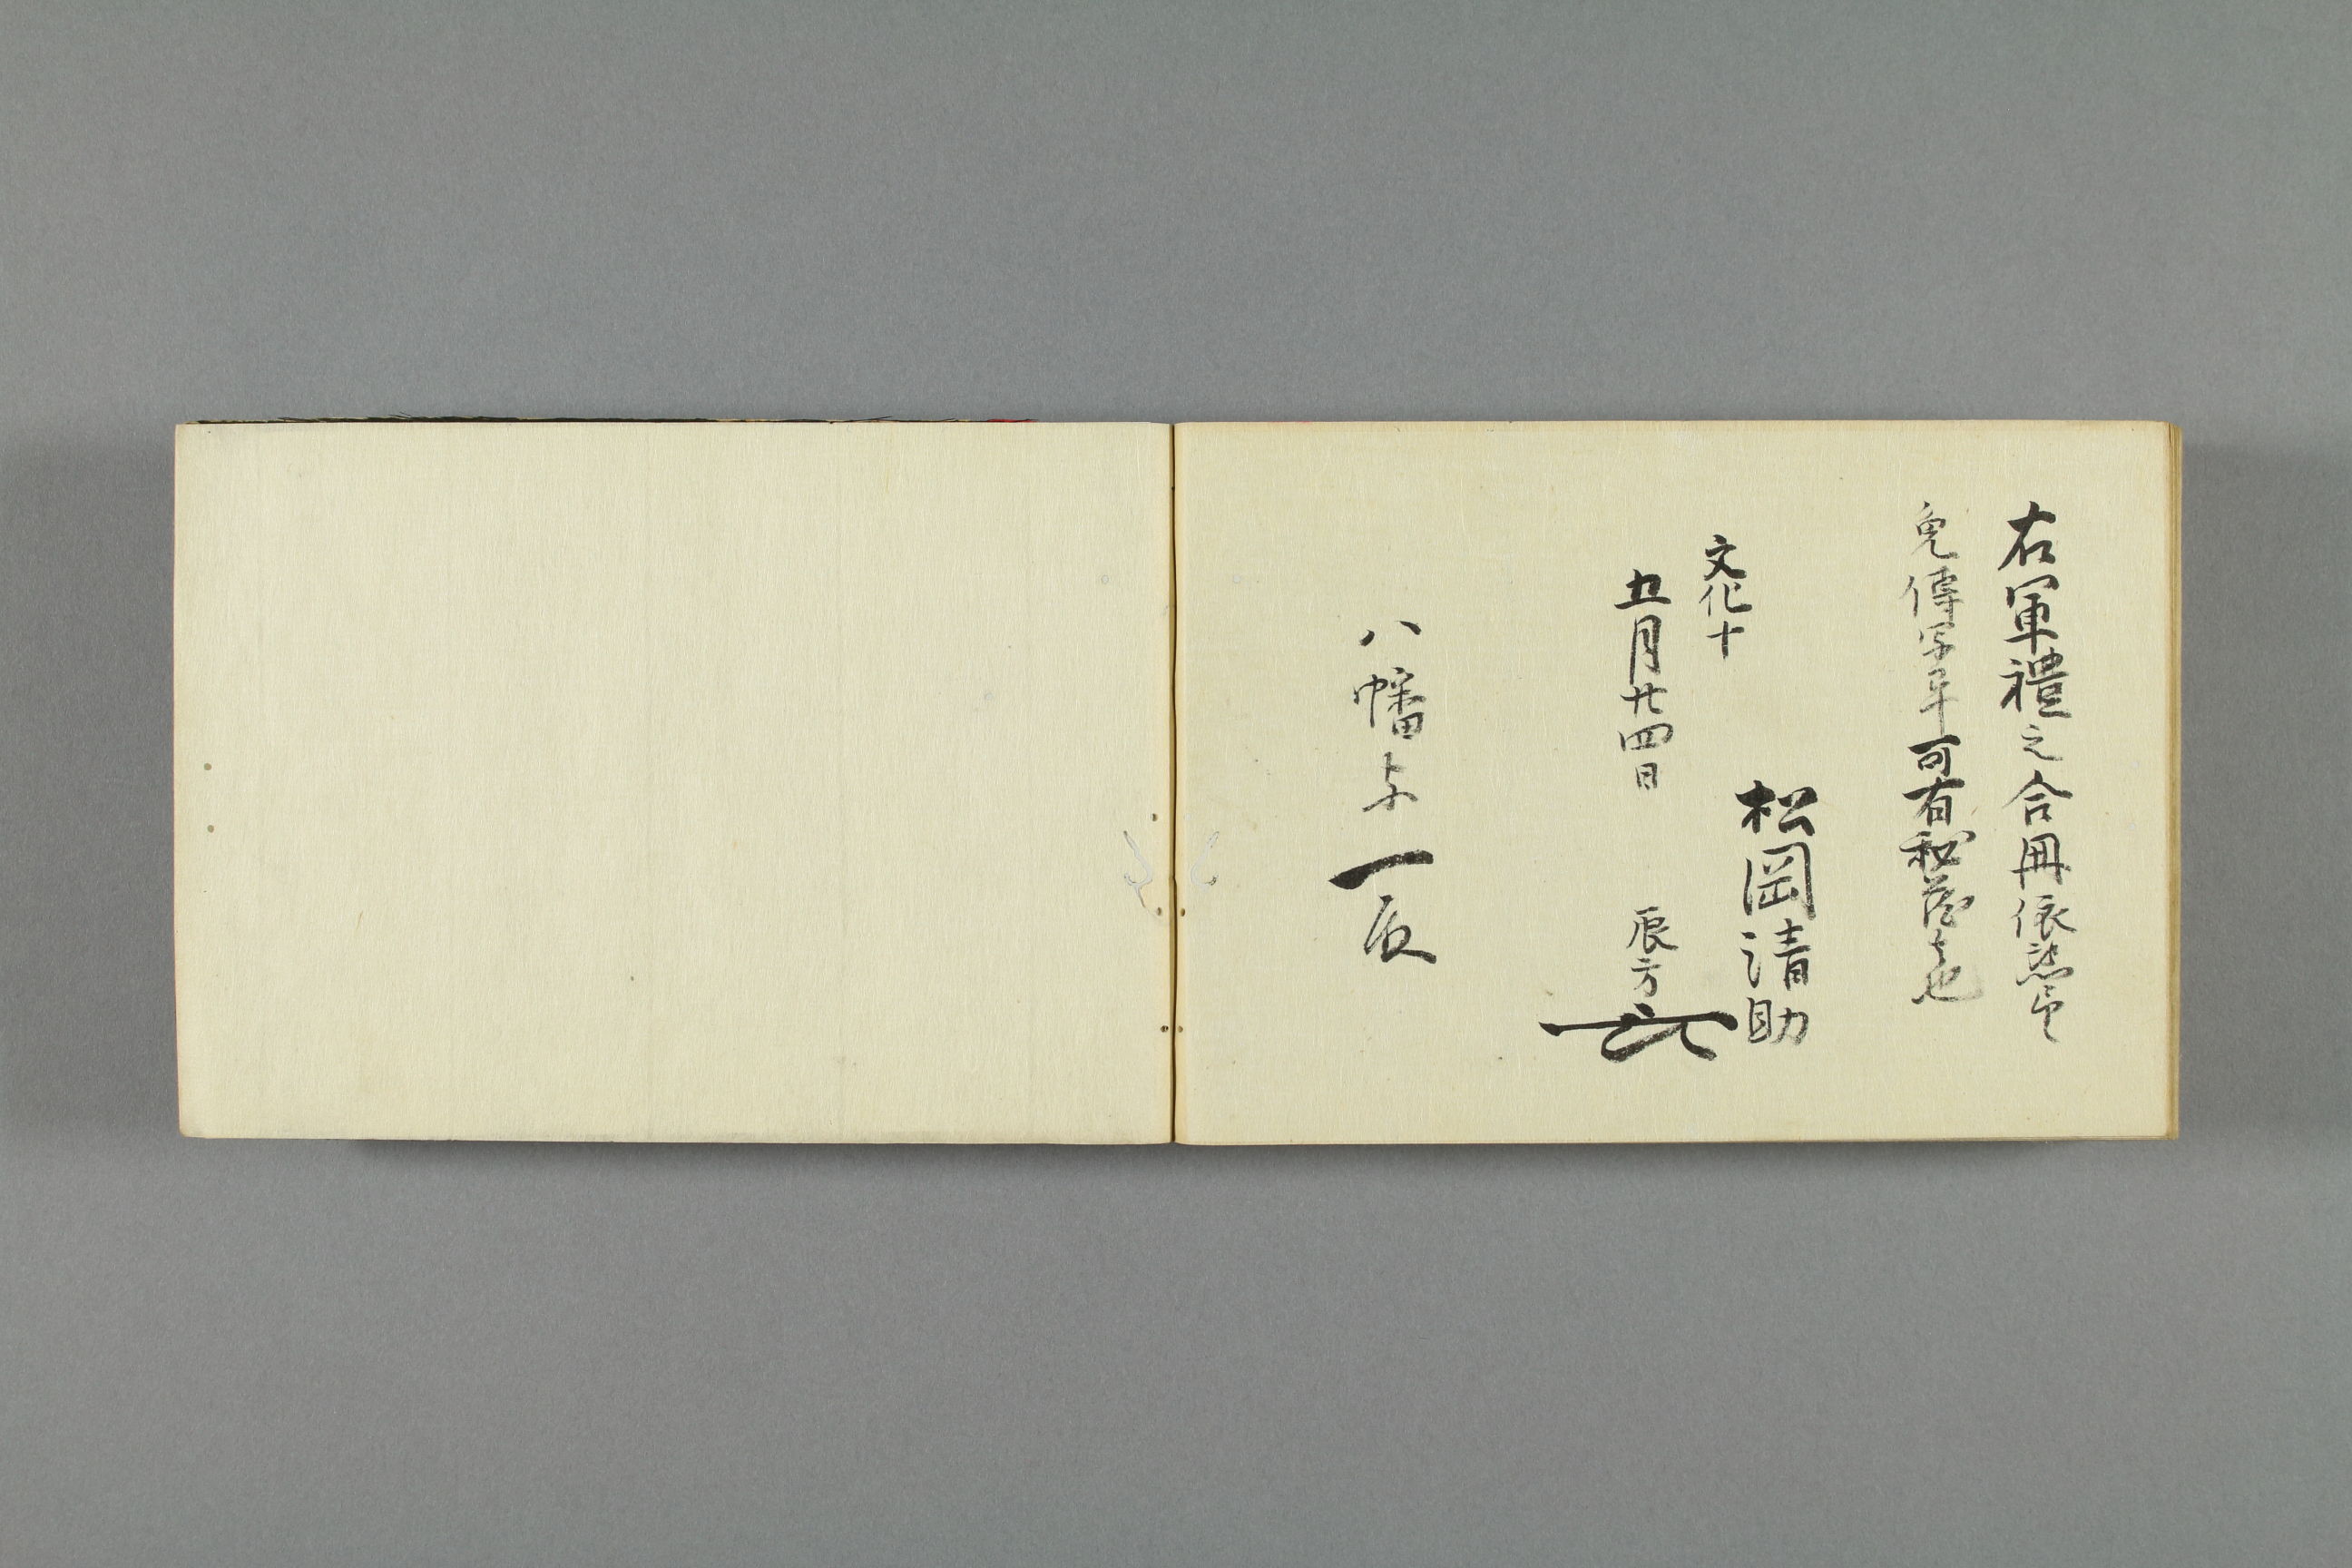 右軍禮之合冊依懇望
免傳写畢可有秘蔵之也
松岡清助
文化十
五月廿四日 辰方
八幡与一殿